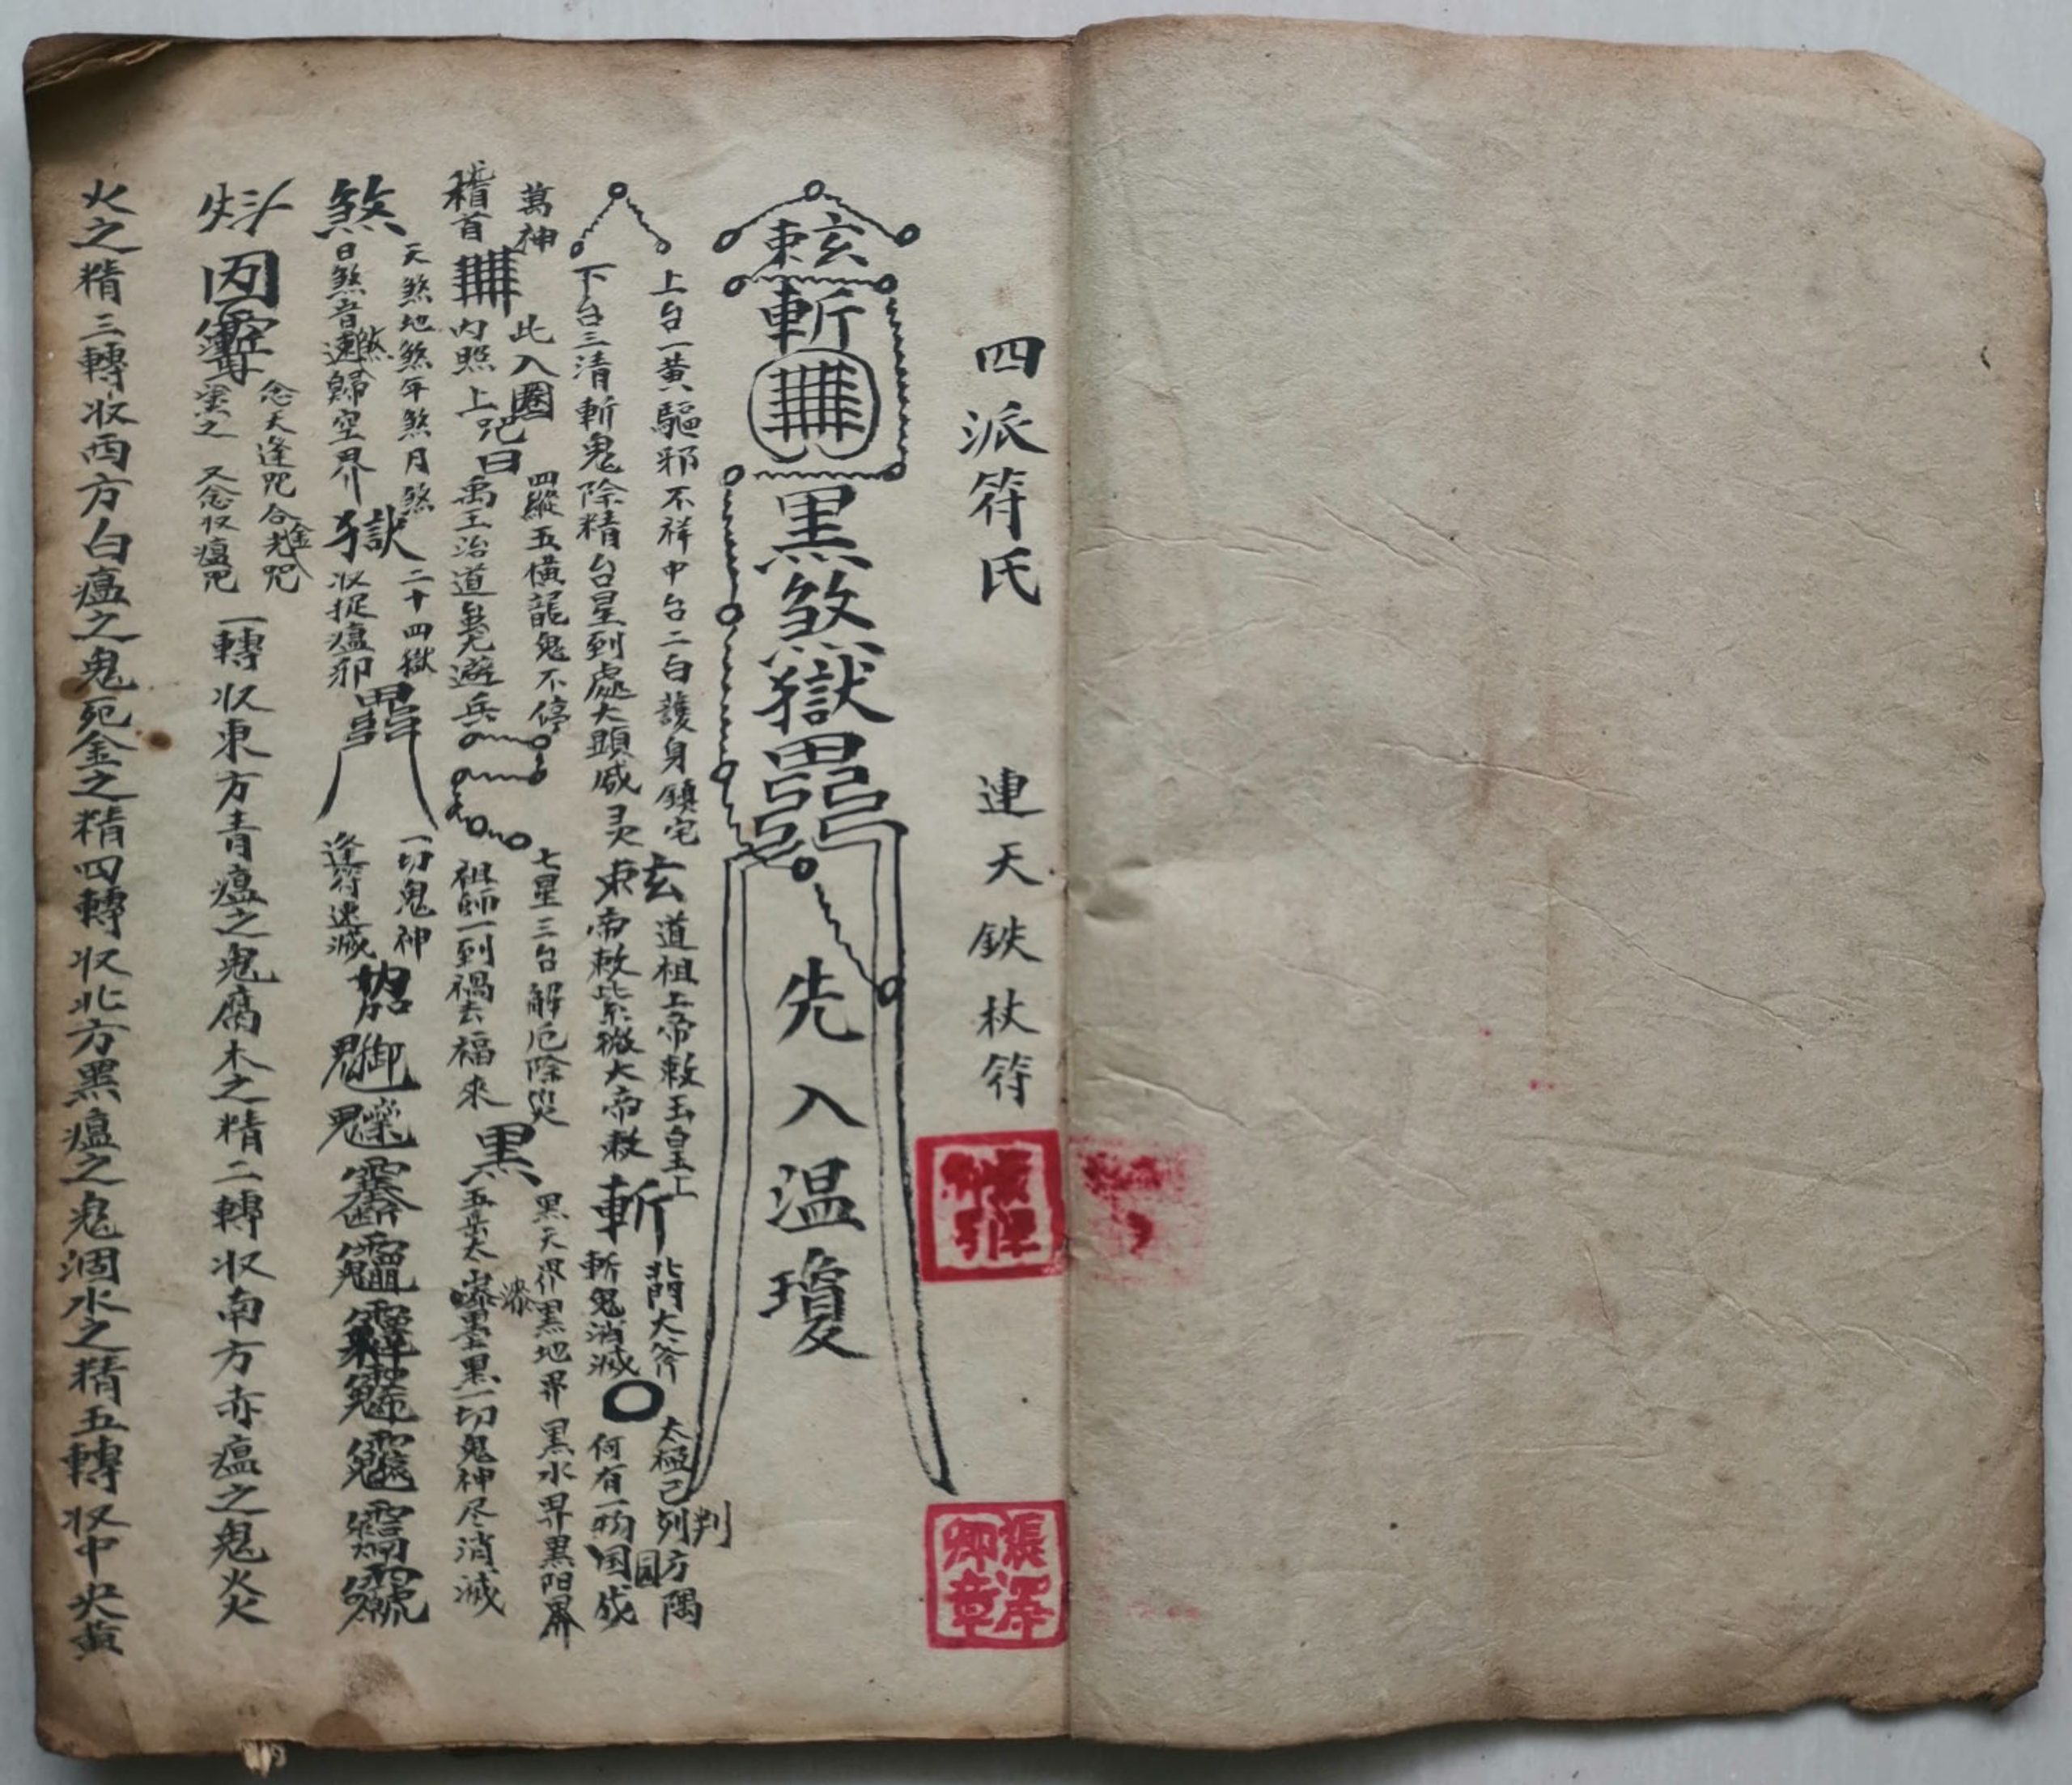 四派符氏 連天鉄杖符
張澤卿章
玄束
斬
黑煞獄
先入温瓊
上台一黄驅邪不祥中台二白護身鎮宅
下台三清斬鬼除精台星到處大顕威灵
玄 道祖上帝敕玉皇上
束 帝敕紫微大帝敕
斬 北門大斧
斬鬼消滅
太極已列方隅
判
何有一物囯成
圆
萬神
稽首
此入圈
内照上
咒曰
四縱五橫龍鬼不停
禹王治道蚩尤避兵
七星三台解厄除災
祖師一到禍去福來
黑 黑天界黑地界黑水界黑阳界
五岳太
黑一切鬼神尽消滅
煞 天煞地煞年煞月煞
日煞音煞速歸空界
獄 二十四獄
収捉瘟邪
一切鬼神
逢符速滅
念天逢咒合金光咒
塗之 又念収瘟咒
一轉収東方青瘟之鬼腐木之精二轉収南方赤瘟之鬼炎
火之精三轉収西方白瘟之鬼死金之精四轉収北方黑瘟之鬼涸水之精五轉収中央黄